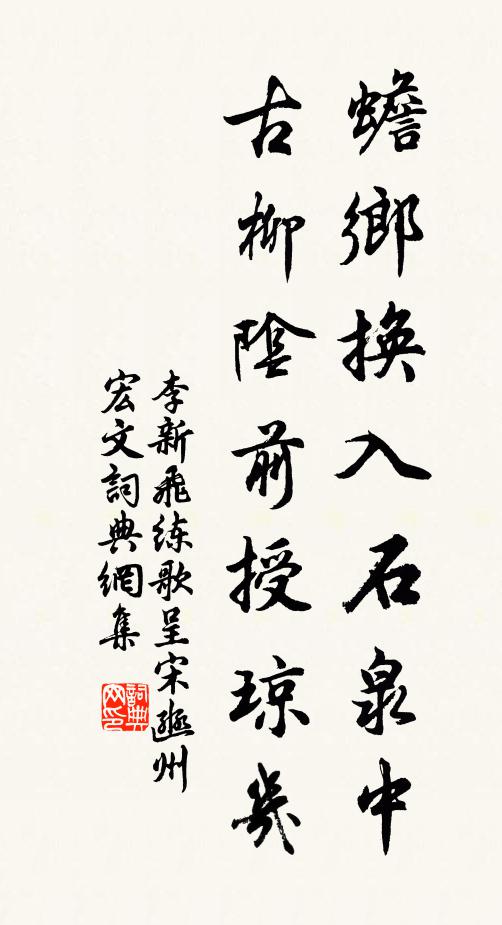 蟾鄉換入石泉中
古柳陰前授琼几
李新飛练歌呈宋遂州
宏文詞典網集
詞典网印